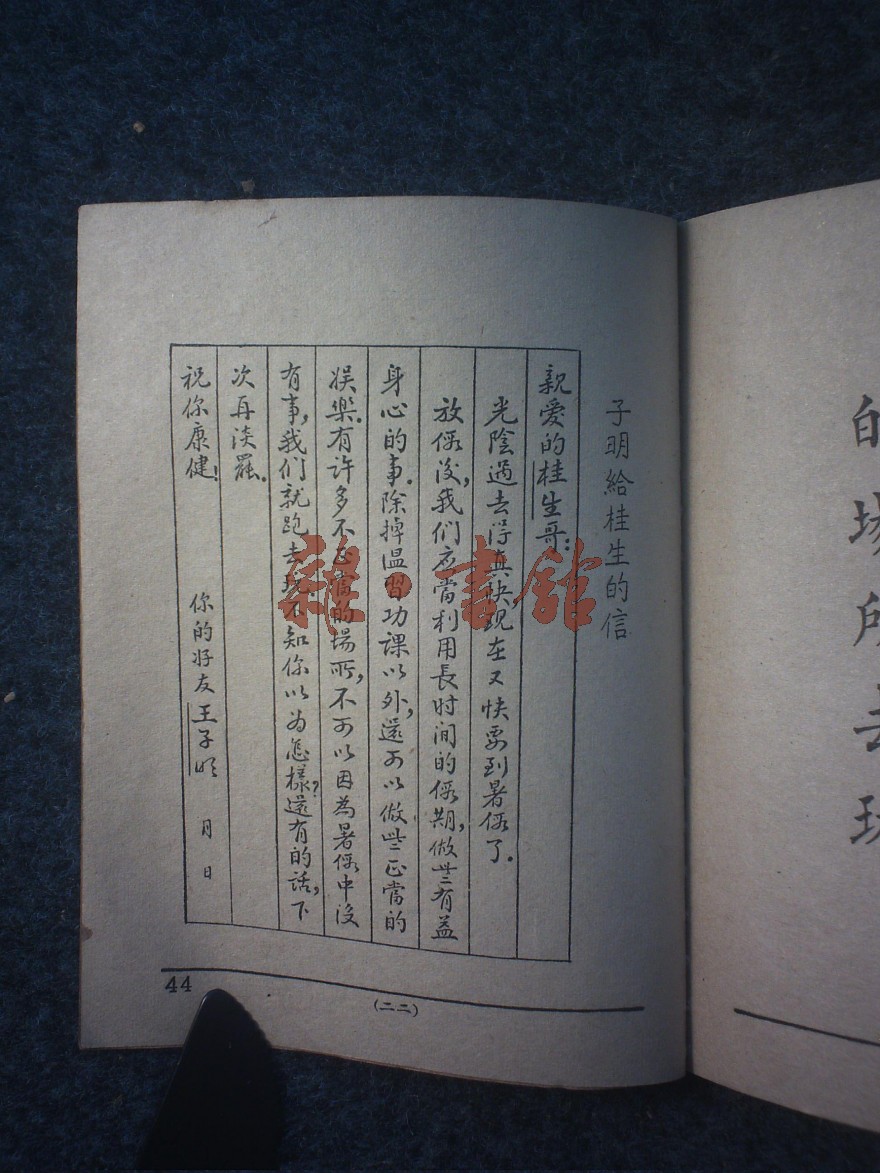 子明給桂生的信
親爱的桂生哥：
光陰過去得真快，现在又快要到暑假了。
放假後，我们应當利用長时间的假期，做些有益
身心的事。除掉温習功課以外，還可以做些正當的
娱樂。有许多不正當的場所，不可以因為暑假中没
有事，我们就跑去玩，不知你以为怎樣？還有的話，下
次再谈罷。
祝你康健！
你的好友王子明　月　日
44
(二二)
的場所去玩
雜·書館